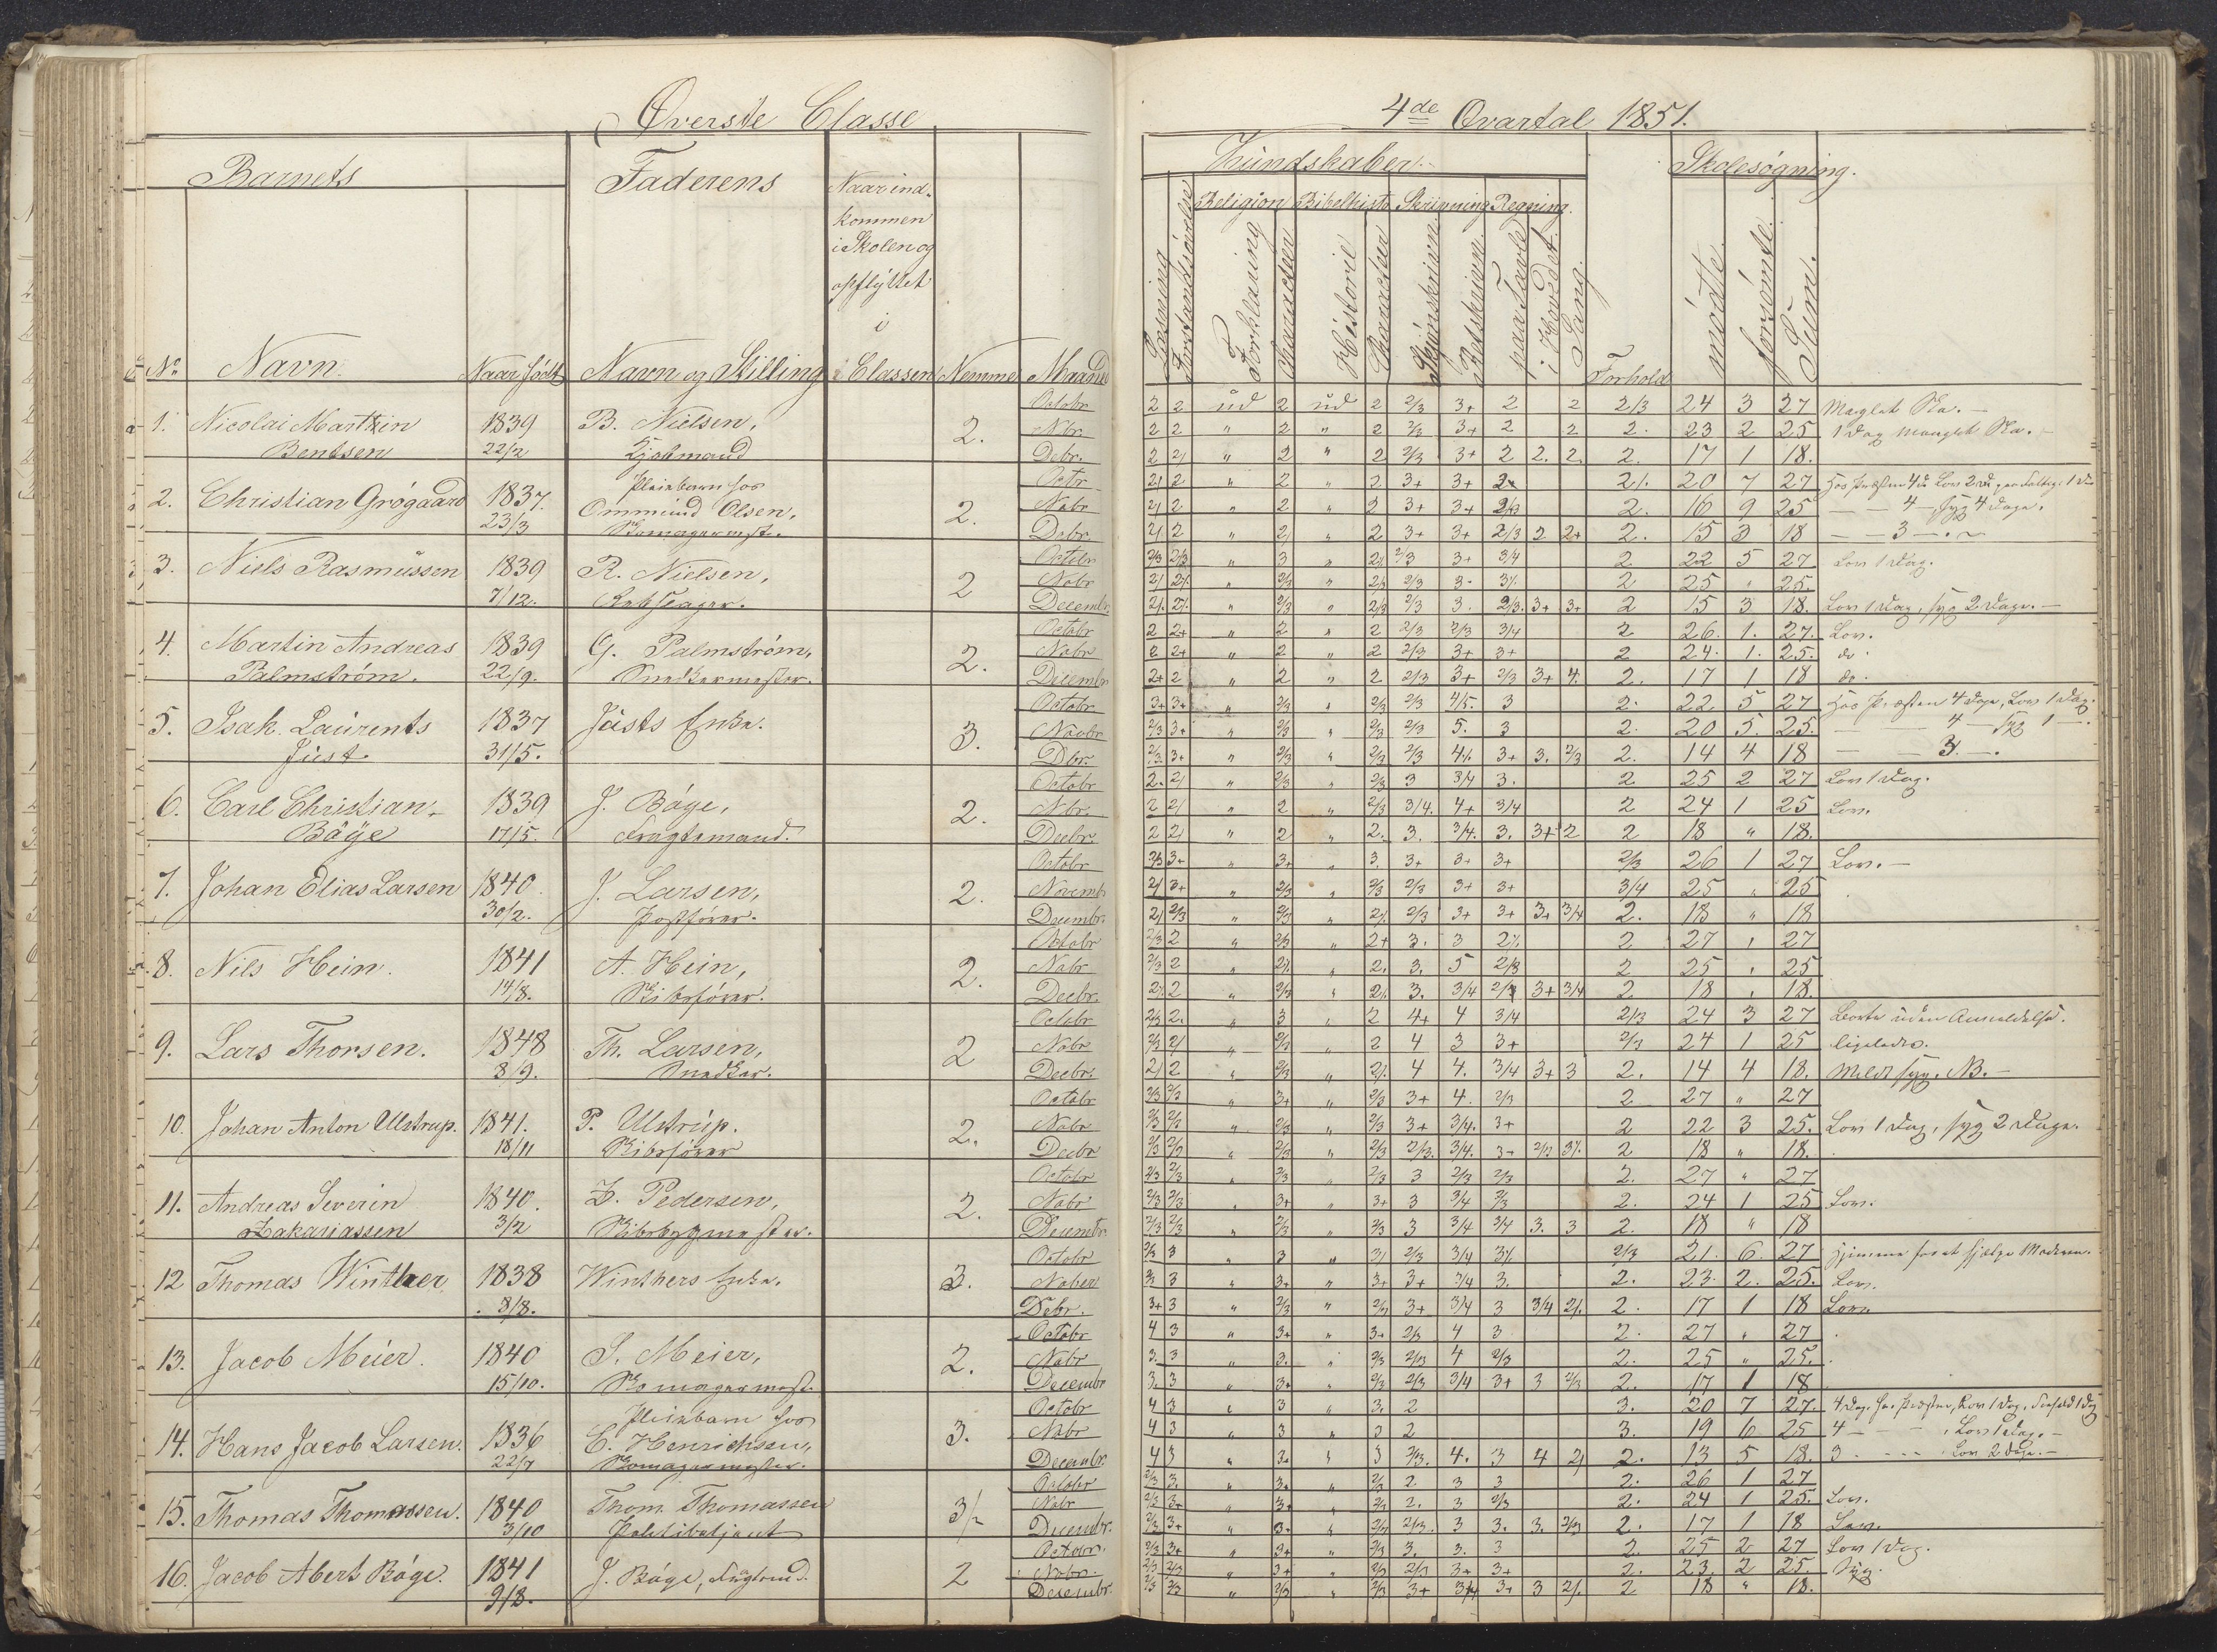 Øverste Classe
Barnets
Faderens
Naar ind-
kommen
i Skolen og
opflyttet
i
No Navn. Naar født Navn og Stilling Classen Nemme Maaned
1. Nicolai Marthin 1839 B. Nielsen, 2. Octobr
Bentsen 22/2 Nbr.
Debr.
2. Christian Grógaard 1837. Pleiebarn hos 2. Octr
23/3 Ommund Olsen, Nobr
Skomagermest. Debr.
3. Niels Rasmussen 1839 R. Nielsen, 2 Octobr
7/12. Rebslager. Nobr
Decembr.
4. Martin Andreas 1839 G. Palmstróm, 2. Octobr
Palmstróm. 22/9. Snedkermester. Nobr
Decembr
5. Isak Laurents 1837 Justs Enke. 3. Octobr
Just. 31/5. Novbr
Dbr.
6. Carl Christian 1839 J. Bóge, 2. Octobr
Bóge 17/5. Fragtemand. Nbr.
Decbr.
7. Johan Elias Larsen 1840. J. Larsen, 2. Octobr
30/2. Postfórer. Novembr
Decembr.
8. Nils Hein. 1841 A. Hein, 2. Octobr
14/8. Skibsfórer. Nobr
Decbr.
9. Lars Thorsen. 1848 Th. Larsen, 2 Octobr
8/9. Snedker. Nobr
Decbr.
10. Johan Anton Ulstrup. 1841. P. Ulstrup. 2. Octobr
18/11 Skibsfórer Nobr
Decbr
11. Andreas Severin 1840. Z. Pedersen, 2. Octobr
Zakariassen 3/2 Skibsbygmester. Nobr
Decembr.
12 Thomas Winther 1838 Winthers Enke. 3. Octobr
8/8. Nober
Debr.
13. Jacob Meier. 1840 S. Meier, 2. Octobr
15/10. Skomagermest. Nobr
Decembr
14. Hans Jacob Larsen. 1836 Pleiebarn hos 3. Octobr
22/7 E. Henrichsen, Nobr
Skomagermester. Decembr.
15. Thomas Thomassen. 1840 Thom. Thomassen Octobr
3/10 Politibetjent Nobr
Decembr.
16. Jacob Abert Bóge. 1841 J. Bóge, 2 Octobr.
9/8. Nobr.
Decembr.
4de Qvartal 1851.
Kundskaber.
Skolesógning.
Religion Bibelhist. Skrivning Regning.
Læsning
Forstandsóvelse
Forklaring
Character
Historie
Character
Skjónskrivn.
Retskrivn.
paa Tavle
i Hovedet.
Sang.
Forhold
módte
forsómte
Sum.
2 2 ud 2 ud 2 2/3 3+ 2 2 2/3 24 3 27
2 2 " 2 " 2 2/3 3+ 2 2 2. 23 2 25 1 Dag
2 2/ " 2 " 2 2/3 3+ 2 2. 2. 2. 17 1 18.
2/ 2 " 2 " 2 3+ 3+ 20 7 27 Hos Præsten 4 d. Lov 2 d.
2/ 2 " 2 " 2 3+ 3+ 2/3 2. 16 9 25 — — 4 — Syg 4 Dage.
2/ 2 " 2/ " 2 3+ 3+ 2/3 2 2+ 2. 15 3 18 — — 3 — . —
2/3 2/3 " 3 " 2/. 2/3 3+ 3/4 2 22 5 27 Lov 1 Dag.
2/ 2/. " 2/3 " 2/3 2/3 3. 3/. 2 25 " 25.
2/. 2/. " 2/3 " 2/3 2/3 3. 2/3. 3+ 3+ 2 15 3 18. Lov 1 Dag, syg 2 Dage. —
2 2+ " 2 " 2 2/3 2/3 3/4 2 26. 1. 27. Lov.
2 2+ " 2 " 2 2/3 3+ 3+ 2 24. 1. 25. do.
2+ 2 " 2 " 2 2/3 3+ 2/3 3+ 4. 2. 17 1 18 do.
3+ 3+ " 2/3 " 2/3 2/3 4/5. 3 2. 22 5 27 Hos Præsten 4 Dage, Lov 1 Dag.
2/3 3+ " 2/3 " 2/3 2/3 5. 3 2. 20 5. 25. — — 4 — Syg 1 —.
2/3. 3+ " 2/3 " 2/3 2/3 4/. 3+ 3. 2/3 2. 14 4 18 — — 3. — .
2. 2/ " 2/3 " 2/3 3 3/4 3. 2 25 2 27 Lov 1 Dag.
2 2/ " 2 " 2/3 3/4. 4+ 3/4 2 24 1 25 Lov.
2 2/ " 2 " 2. 3. 3/4. 3. 3+ 2 2 18 " 18.
2/3 3+ " 3+ " 3. 3+ 3+ 3+ 2/3 26 1 27 Lov. —
2/ 3+ " 2/3 " 2/3 2/3 3+ 3+ 3/4 25 " 25
2/ 2/3 " 2/3 " 2/. 2/3 3+ 3+ 3+ 3/4 2. 18 " 18
2/3 2 " 2/3 " 2+ 3. 3 2/. 2 27 " 27
2/3 2 " 2/. " 2. 3. 5 2/3 2 25 " 25
2/. 2 " 2/3 " 2/. 3. 3/4 2/3 3+ 3/4 2. 18 " 18.
2/3 2. " 3 " 2 4+ 4 3/4 2/3 24 3 27 Borte uden Anmeldelse.
2/3 2/ " 2/3 " 2 4 3 3+ 2/3 24 1 25 ligeledes.
2/ 2 " 2/3 " 2/. 4 4. 3/4 3+ 3 2. 14 4 18. Meldt syg. NB. —
2/3 2/3 " 3+ " 2/3 3+ 4. 2/3 2 27 " 27
2/3 2/3 " 2/3 " 2/3 3+ 3/4. 3+ 2 22 3 25. Lov 1 Dag, syg 2 Dage.
2/3 2/3 " 2/3 " 2/3 2/3. 3/4. 3+ 2/3 3/. 2 18 " 18.
2/3 2/3 " 2/3 " 2/3 3 2/3 2/3 2. 27 " 27
2/3 2/3 " 3+ " 3+ 3 3/4 2/3 2. 24 1 25 Lov.
2/3 2/3 " 2/3 " 2/3 3 3/4 3/4 3. 3 2. 18 " 18
2/3 3 " 3 " 3/ 2/3 3/4 3/. 2/3 21. 6. 27 Hjemme for at hjelpe Moderen.
3 " 3+ " 3+ 3+ 3/4 3. 2. 23. 2. 25. Lov.
3+ 3 " 2/3 " 2/3 3+ 3/4 3 3/4 2/. 2. 17 1 18 Lov.
4 3 " 3+ " 3+ 2/3 4 3 2. 27 " 27
3. 3 " 3. " 2/3 2/3 4 2/3 2. 25 " 25.
3. 3 " 3+ " 2/3 2/3 3/4 3+ 3 2/3 2. 17 1 18
4 3 " 3 " 3. 2 3. 20 7 27 4 Dag. hos Præsten, Lov 1 Dag,
4 3 " 3 " 3 2 3. 19 6 25 4 — — — , Lov 1 Dag. —
4 3 " 3. " 3 2/3. 4. 3 4 2/ 2. 13 5 18. 3 — — — Lov 2 Dage. —
2/3 3. " 3+ " 2/3 2. 3 3 2. 26 1 27
2/3 3+ " 3+ " 2/3 2. 3 2/3 2. 24 1 25. Lov.
2/3 3+ " 3. " 2/3 2/3. 3 3. 3. 2/3 2. 17 1 18 Lov.
2/3 3+ " 3+ " 2/3 3. 3. 3 2. 25 2 27 Lov 1 Dag.
2/3 2/3 " 3+ " 2/3 2/3 3+ 3+ 2. 23. 2 25. Syg.
2/3 2/3 " 2/3 " 2/3 3+ 3/4 3+ 3 2/. 2 18 " 18.